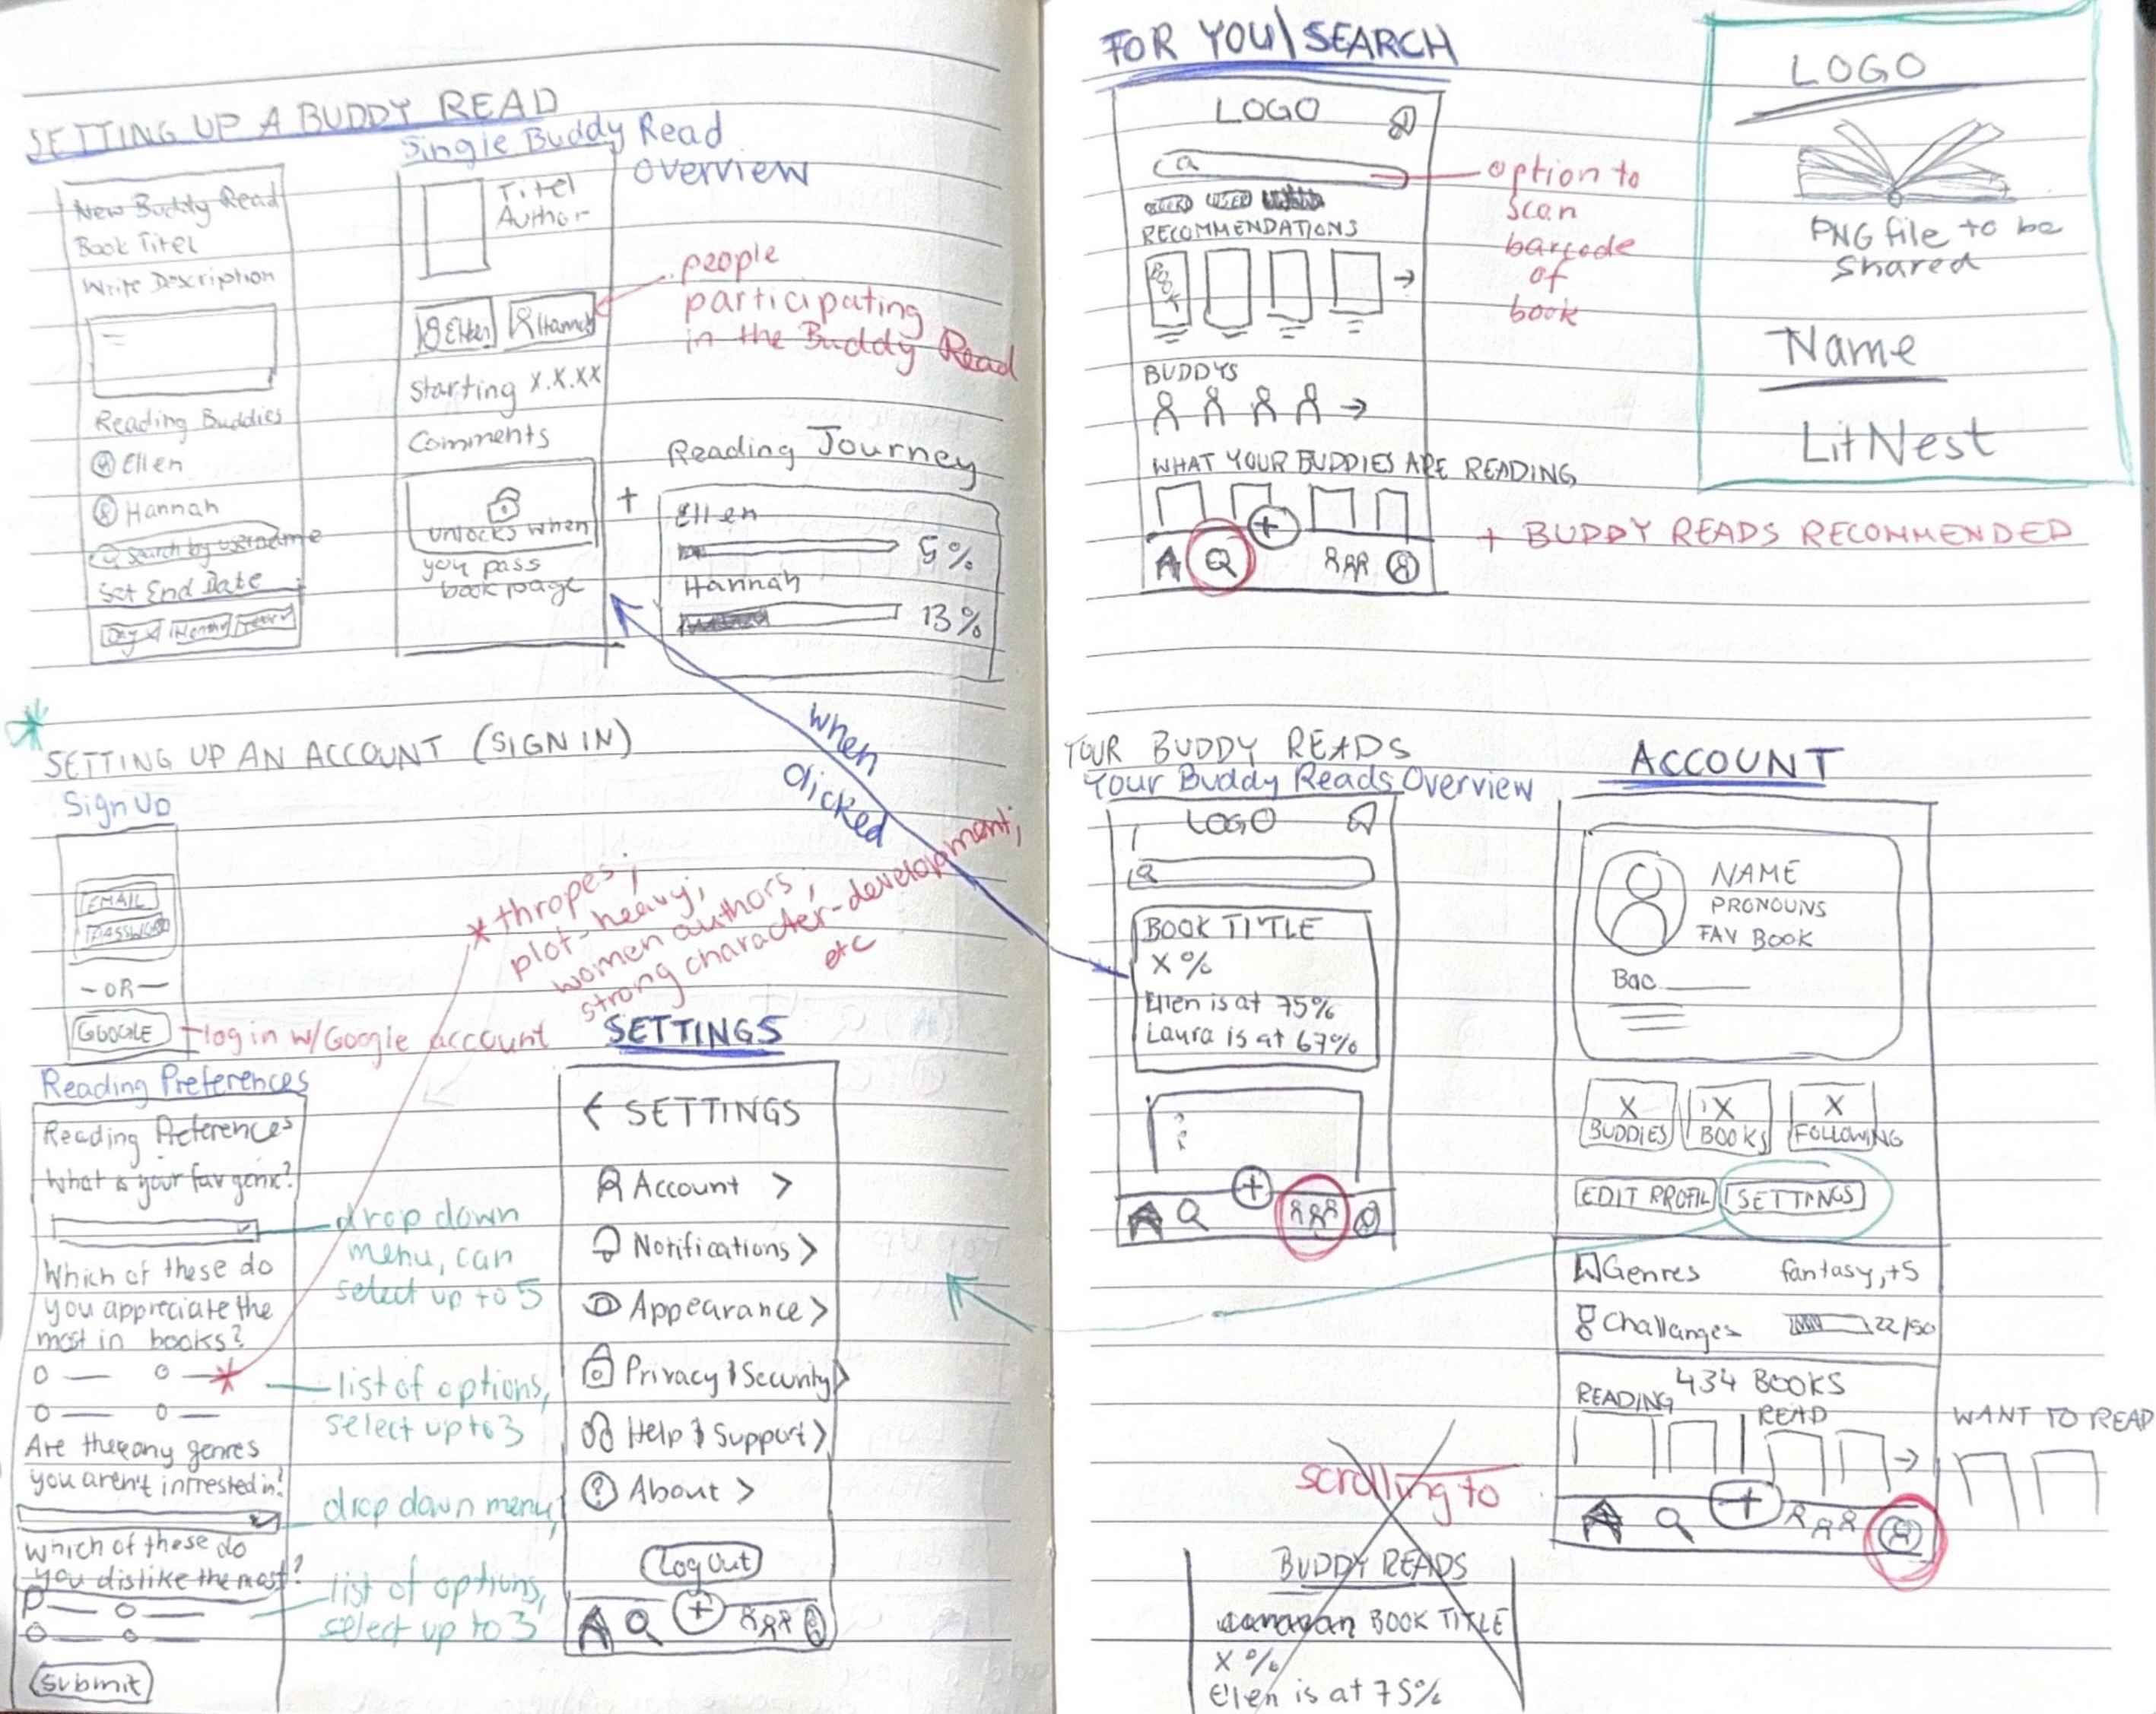 SETTING UP A BUDDY READ
New Buddy Read
Book Titel
Write Description
Reading Buddies
Ellen
Hannah
Search by username
Set End Date
Day
Month
Year
Single Buddy Read
overview
Titel
Author
Ellen
Hannah
people
participating
in the Buddy Read
Starting X.X.XX
Comments
Unlocks when
you pass
book page
+
Reading Journey
Ellen
5%
Hannah
13%
when
clicked
SETTING UP AN ACCOUNT (SIGN IN)
Sign Up
EMAIL
PASSWORD
- OR -
GOOGLE
log in w/Google account
* thropes;
plot-heavy;
women authors;
strong character-development;
etc
Reading Preferences
Reading Preferences
What is your fav genre?
drop down
menu, can
select up to 5
Which of these do
you appreciate the
most in books?
list of options,
select up to 3
Are there any genres
you aren't intrested in?
drop down menu
Which of these do
you dislike the most?
list of options,
select up to 3
Submit
SETTINGS
← SETTINGS
Account >
Notifications >
Appearance >
Privacy & Security >
Help & Support >
About >
Log Out
FOR YOU\SEARCH
LOGO
option to
scan
barcode
of
book
RECOMMENDATIONS
BOOK
→
BUDDYS
→
WHAT YOUR BUDDIES ARE READING
+
+ BUDDY READS RECOMMENDED
LOGO
PNG file to be
shared
Name
LitNest
YOUR BUDDY READS
Your Buddy Reads Overview
LOGO
BOOK TITLE
X %
Ellen is at 75%
Laura is at 67%
+
scrolling to
BUDDY READS
BOOK TITLE
X %
Ellen is at 75%
ACCOUNT
NAME
PRONOUNS
FAV BOOK
X
BUDDIES
X
BOOKS
X
FOLLOWING
EDIT PROFIL
SETTINGS
Genres fantasy,+5
Challanges 22/50
434 BOOKS
READING
READ
WANT TO READ
→
+